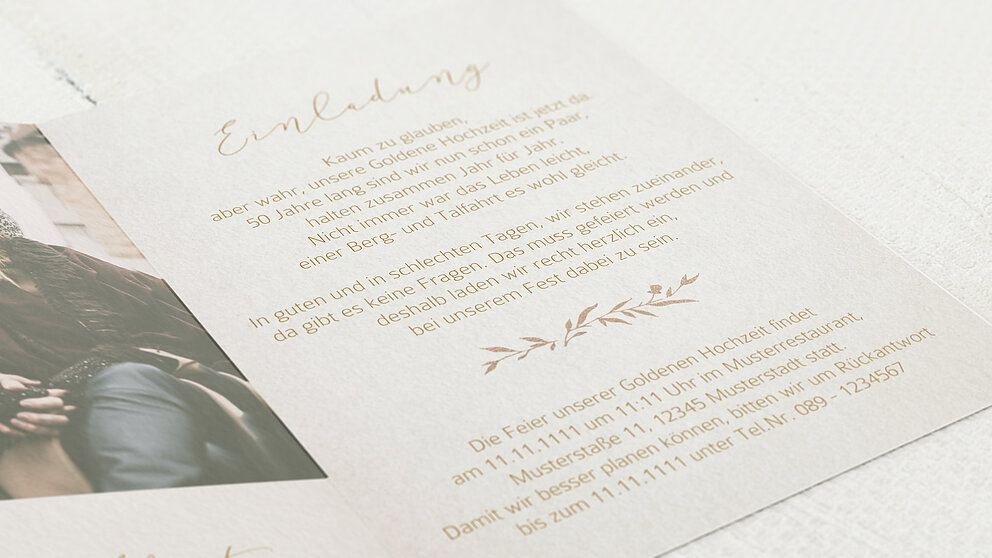 Einladung
Kaum zu glauben,
aber wahr, unsere Goldene Hochzeit ist jetzt da.
50 Jahre lang sind wir nun schon ein Paar,
halten zusammen Jahr für Jahr.
Nicht immer war das Leben leicht,
einer Berg- und Talfahrt es wohl gleicht.
In guten und in schlechten Tagen, wir stehen zueinander,
da gibt es keine Fragen. Das muss gefeiert werden und
deshalb laden wir recht herzlich ein,
bei unserem Fest dabei zu sein.
Die Feier unserer Goldenen Hochzeit findet
am 11.11.1111 um 11:11 Uhr im Musterrestaurant,
Musterstaße 11, 12345 Musterstadt statt.
Damit wir besser planen können, bitten wir um Rückantwort
bis zum 11.11.1111 unter Tel.Nr. 089 - 1234567